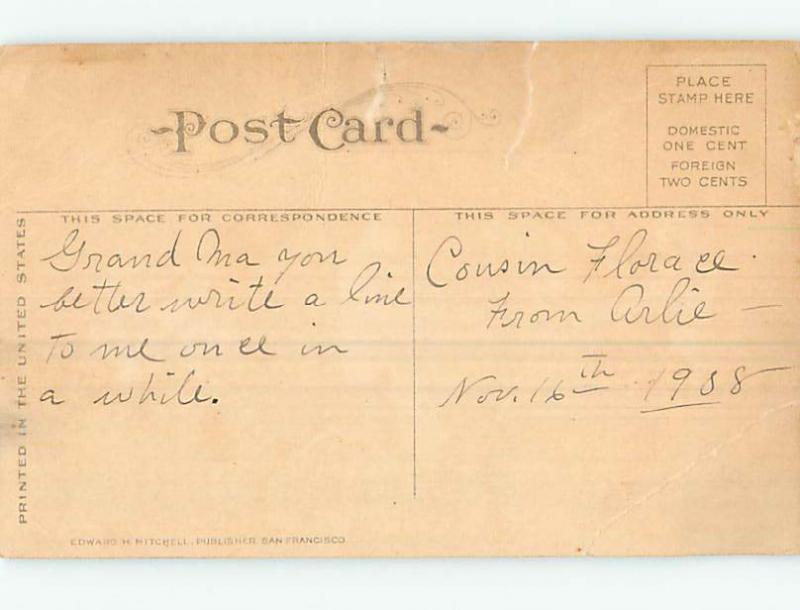 Post Card
PLACE
STAMP HERE
DOMESTIC
ONE CENT
FOREIGN
TWO CENTS
THIS SPACE FOR CORRESPONDENCE
THIS SPACE FOR ADDRESS ONLY
PRINTED IN THE UNITED STATES
Grand Ma you
better write a line
to me once in
a while.
Cousin Florace
From Arlie –
Nov. 16th 1908
EDWARD H. MITCHELL, PUBLISHER SAN FRANCISCO